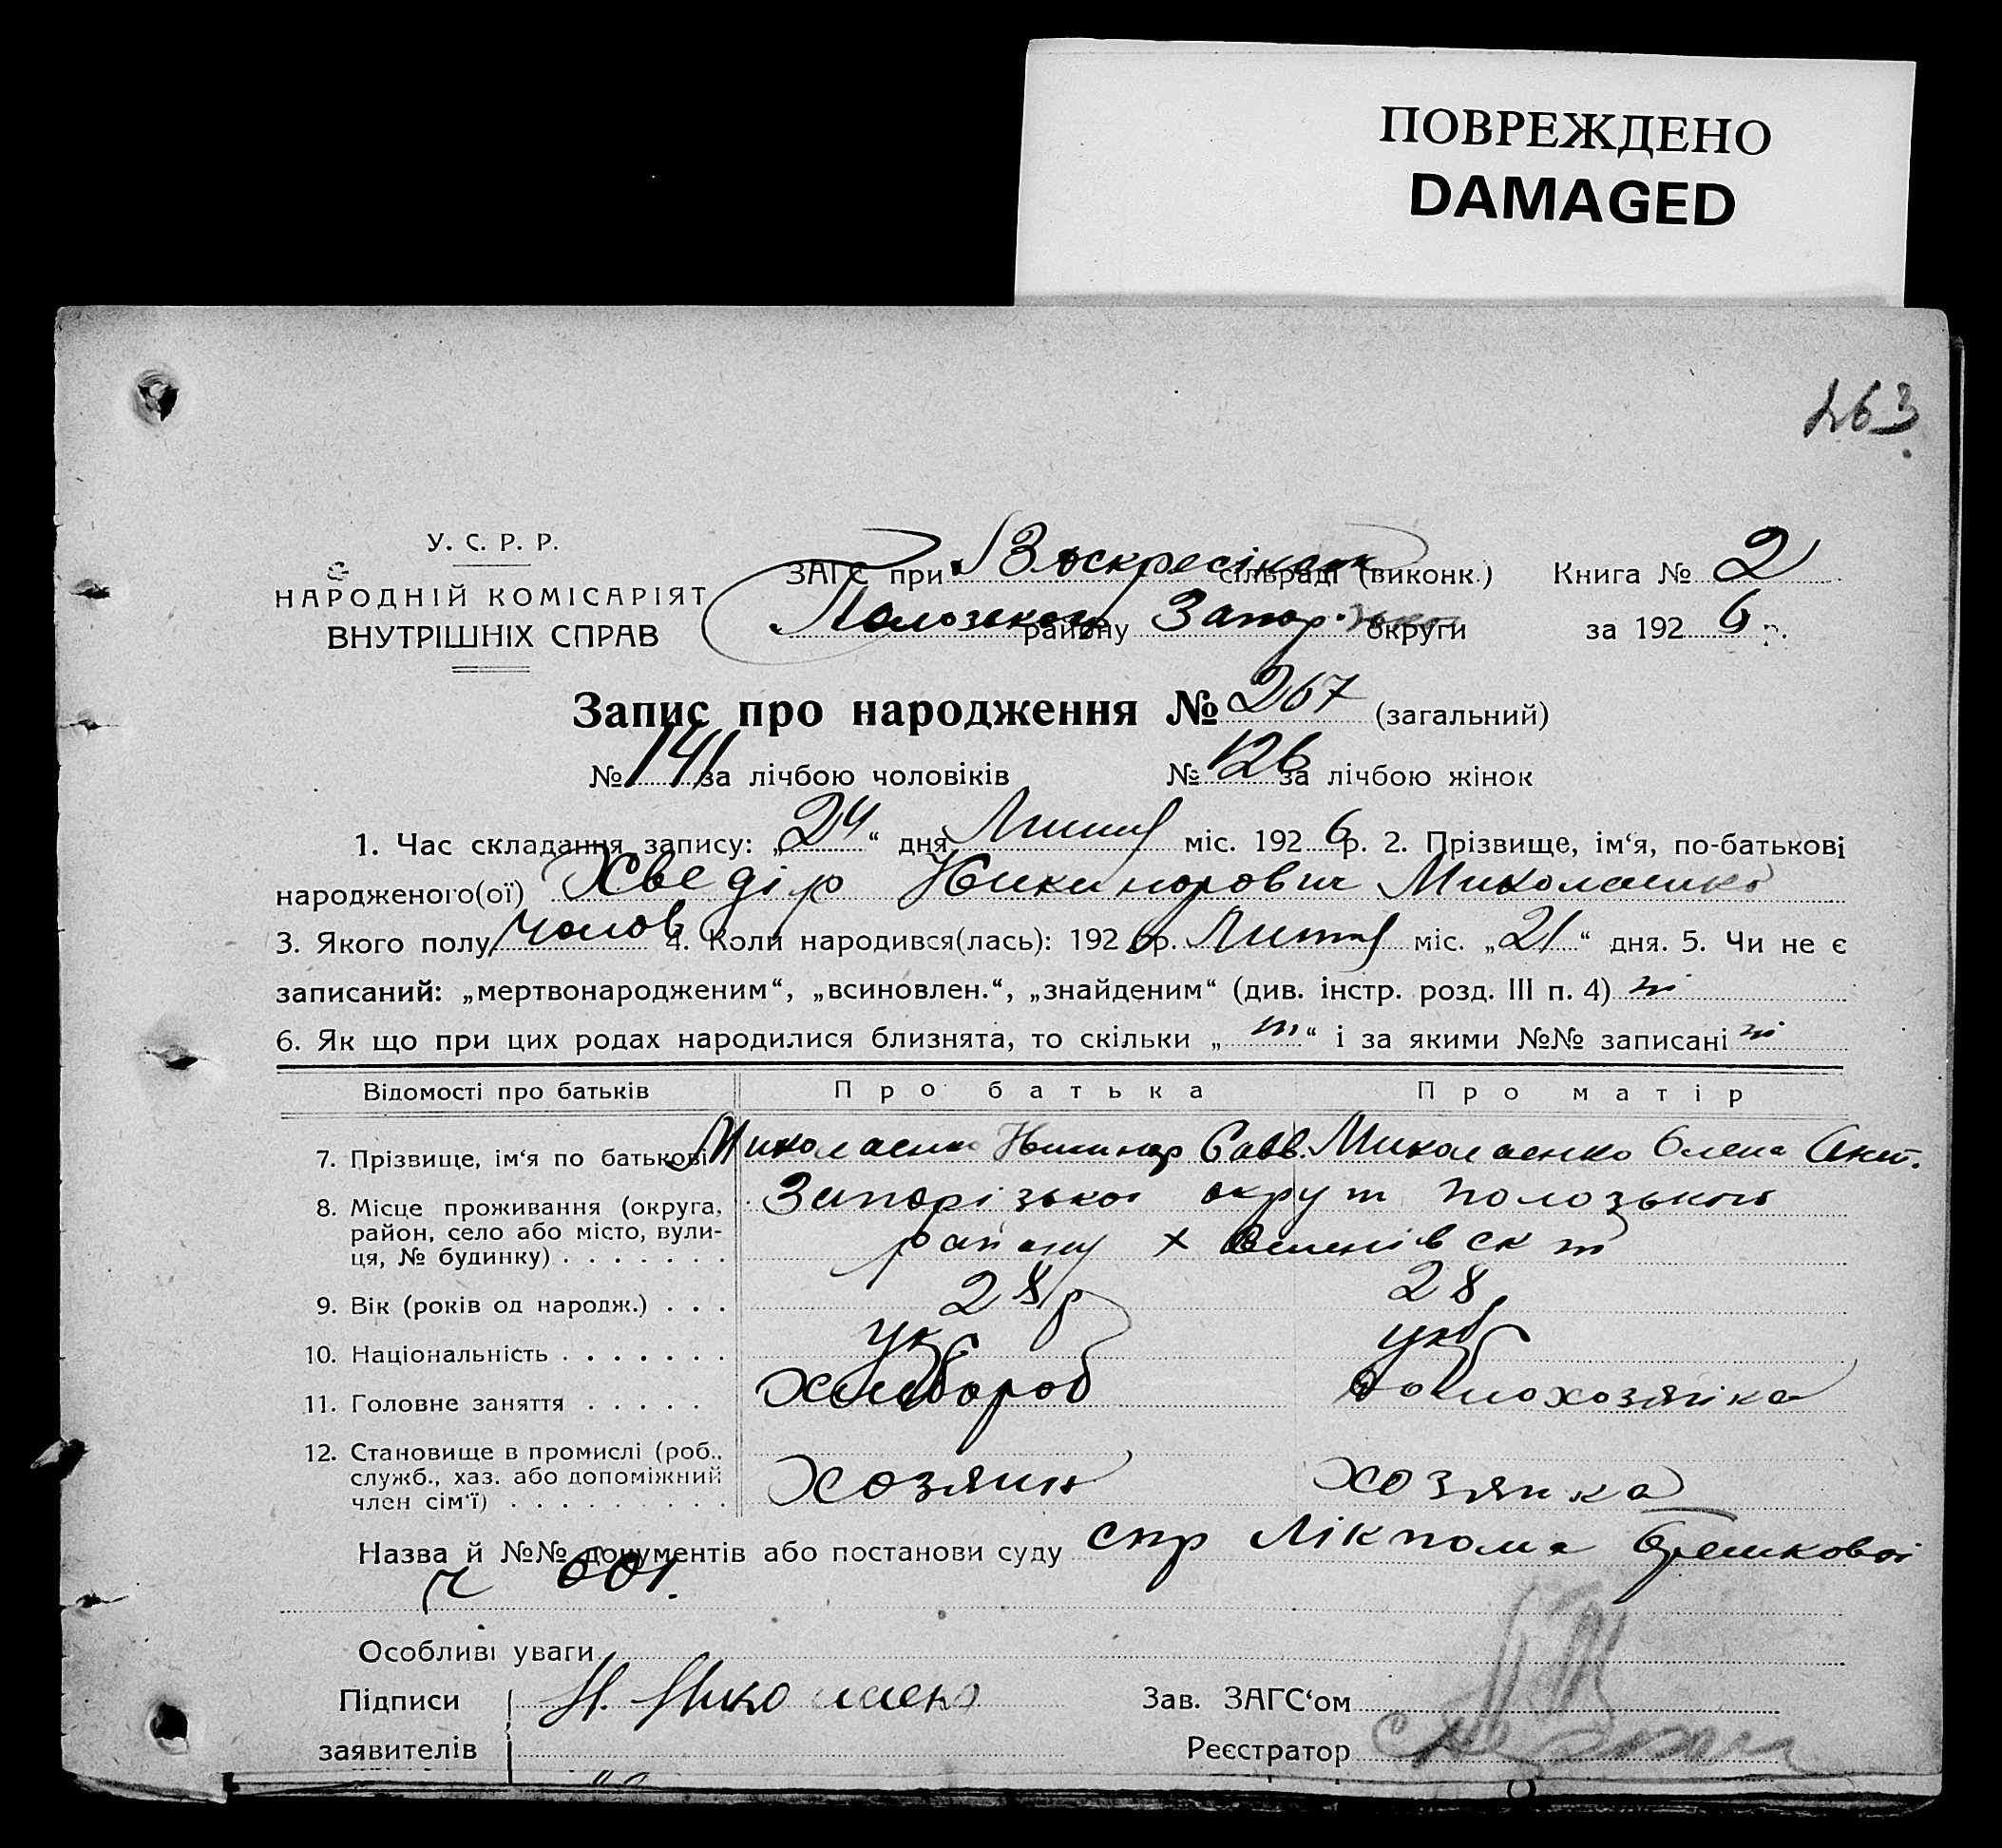 ПОВРЕЖДЕНО
DAMAGED
263
У. С. Р. Р.
НАРОДНІЙ КОМІСАРІЯТ
ВНУТРІШНІХ СПРАВ
ЗАГС при Воскресінськ сільраді (виконк.) Книга № 2
Полозького району Запорізької округи за 1926 р.
Запис про народження № 267 (загальний)
№ 141 за лічбою чоловіків № 126 за лічбою жінок
1. Час складання запису: „24“ дня міс. 1926 р. 2. Прізвище, ім‘я, по-батькові
народженого(ої) Хведір Никанорович Миколаенко
3. Якого полу чолов 4. Коли народився(лась): 1926 р. міс. „21“ дня. 5. Чи не є
записаний: „мертвонародженим“, „всиновлен.“, „знайденим“ (див. інстр. розд. III п. 4) ні
6. Як що при цих родах народилися близнята, то скільки „ні“ і за якими №№ записані ні
Відомості про батьків Про батька Про матір
7. Прізвище, ім‘я по батькові Миколаенко Никанор Савв. Миколаенко Олена
8. Місце проживання (округа, район, село або місто, вулиця, № будинку) Запорізької округи Полозького
району х
9. Вік (років од народж.) 28 р 28
10. Національність укр укр
11. Головне заняття хлебороб домохозяйка
12. Становище в промислі (роб., служб., хаз. або допоміжний член сім‘ї) хозяин хозяйка
Назва й №№ документів або постанови суду спр Лікпома
ч 601.
Особливі уваги
Підписи Н. Миколаенко Зав. ЗАГС‘ом
заявителів Реєстратор